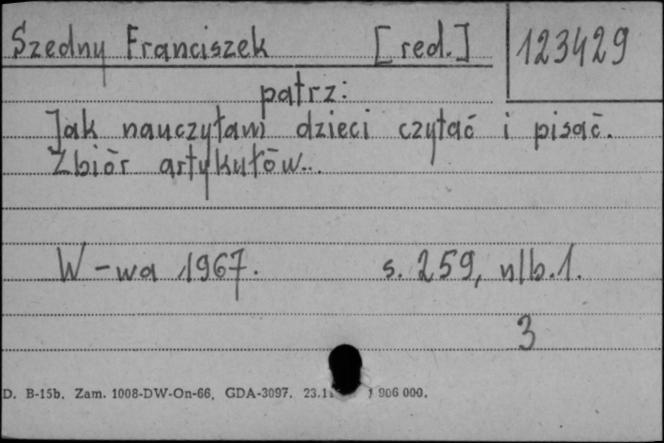 Szedny Franciszek [red.] 123429
patrz:
Jak nauczyłam dzieci czytać i pisać.
Zbiór artykułów...
W-wa 1967. s. 259, nlb.1.
3
D. B-15b. Zam. 1008-DW-On-66, GDA-3097. 23.11 906 000.